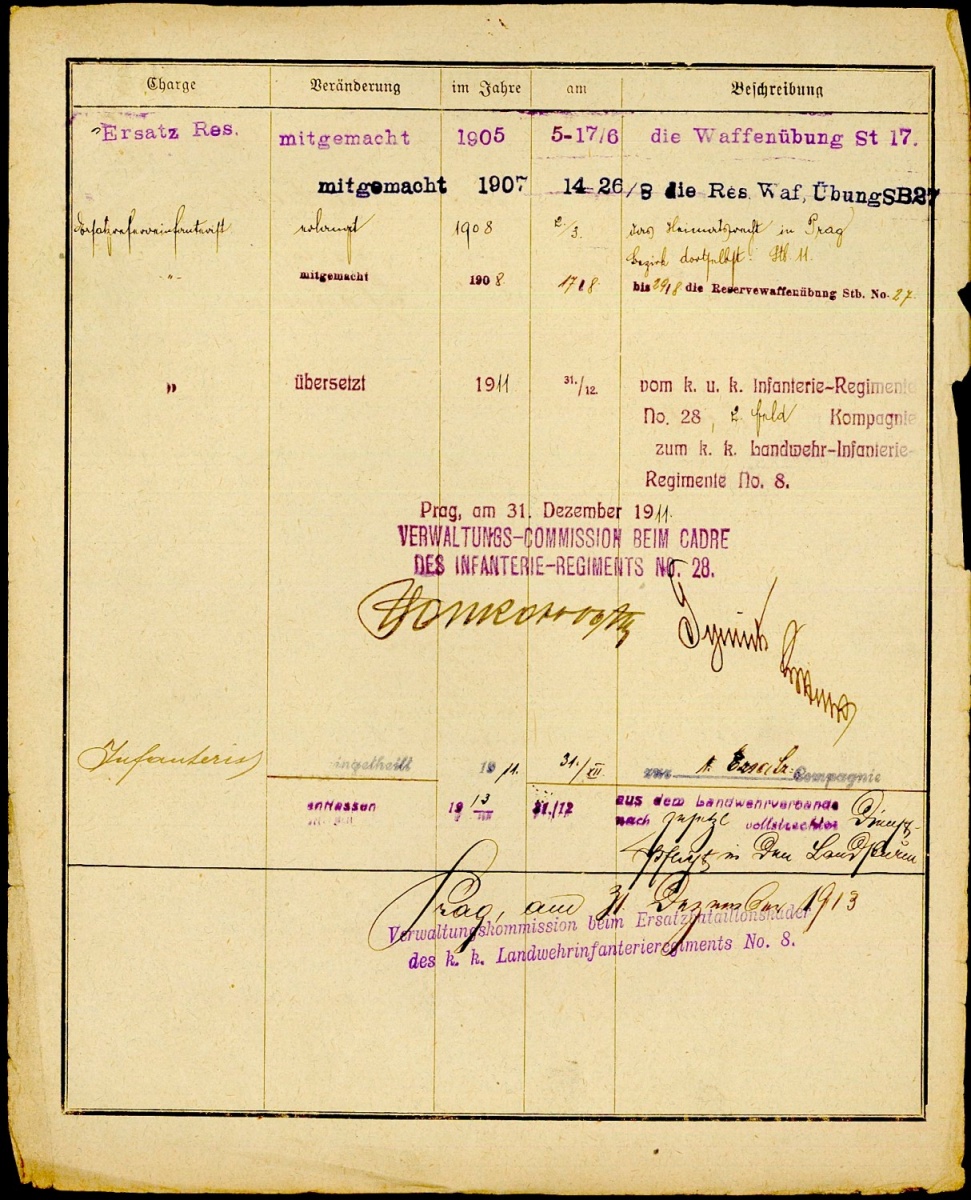 Charge Veränderung im Jahre am Beschreibung
"Ersatz Res. mitgemacht 1905 5-17/6 die Waffenübung St 17.
mitgemacht 1907 14 26/8 die Res. Waf, Übung SB27
Ersatzreserveinfanterist erlangt 1908 2/3. das Heimatsrecht in Prag
Bezirk dortselbst. Stb. 11.
-"- mitgemacht 1908. 17/8 bis 29/8 die Reservewaffenübung Stb. No. 27.
" übersetzt 1911 31./12. vom k. u. k. Infanterie-Regimente
No. 28, 2. feld Kompagnie
zum k. k. Landwehr-Infanterie-
Regimente No. 8.
Prag, am 31. Dezember 1911.
VERWALTUNGS-COMMISSION BEIM CADRE
DES INFANTERIE-REGIMENTS NO. 28.
Infanterist eingetheilt 1911. 31./XII. zur Ersatz-Compagnie
entlassen 1913 31./12 aus dem Landwehrverbande
nach gesetzl vollstreckter Dienst-
pflicht in den Landsturm
Prag, am 31. Dezember 1913
Verwaltungskommission beim Ersatzbataillonskader
des k. k. Landwehrinfanterieregiments No. 8.